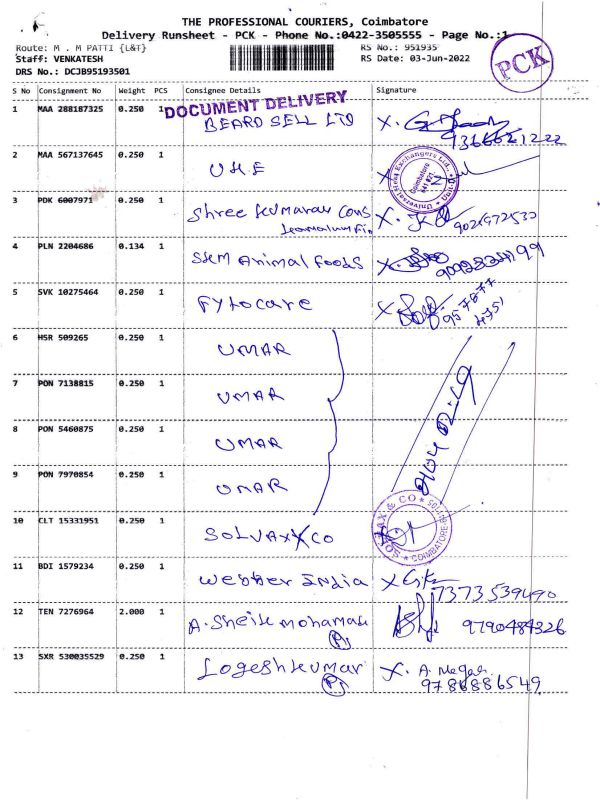 THE PROFESSIONAL COURIERS, Coimbatore
Delivery Runsheet - PCK - Phone No.:0422-3505555 - Page No.:1
Route: M . M PATTI {L&T} RS No.: 951935
Staff: VENKATESH RS Date: 03-Jun-2022
DRS No.: DCJB95193501
PCK
S No Consignment No Weight PCS Consignee Details Signature
DOCUMENT DELIVERY
1 MAA 288187325 0.250 1 BEARD SELL LTD X.
9366621222
2 MAA 567137645 0.250 1 UHE X
Universal Heat Exchangers Ltd. Coimbatore
3 PDK 6007971 0.250 1 Shree Kumaran Cons X.
4 PLN 2204686 0.134 1 SKM Animal Foods X
5 SVK 10275464 0.250 1 Fytocare X
6 HSR 509265 0.250 1 UMAR
7 PON 7138815 0.250 1 UMAR
8 PON 5460875 0.250 1 UMAR
9 PON 7970854 0.250 1 UMAR
10 CLT 15331951 0.250 1 SOLVAX X CO
11 BDI 1579234 0.250 1 Webber India X
7373539490
12 TEN 7276964 2.000 1 A. Sheik Mohamad 9790484326
13 SXR 530035529 0.250 1 Logeshkumar X.
9786886549